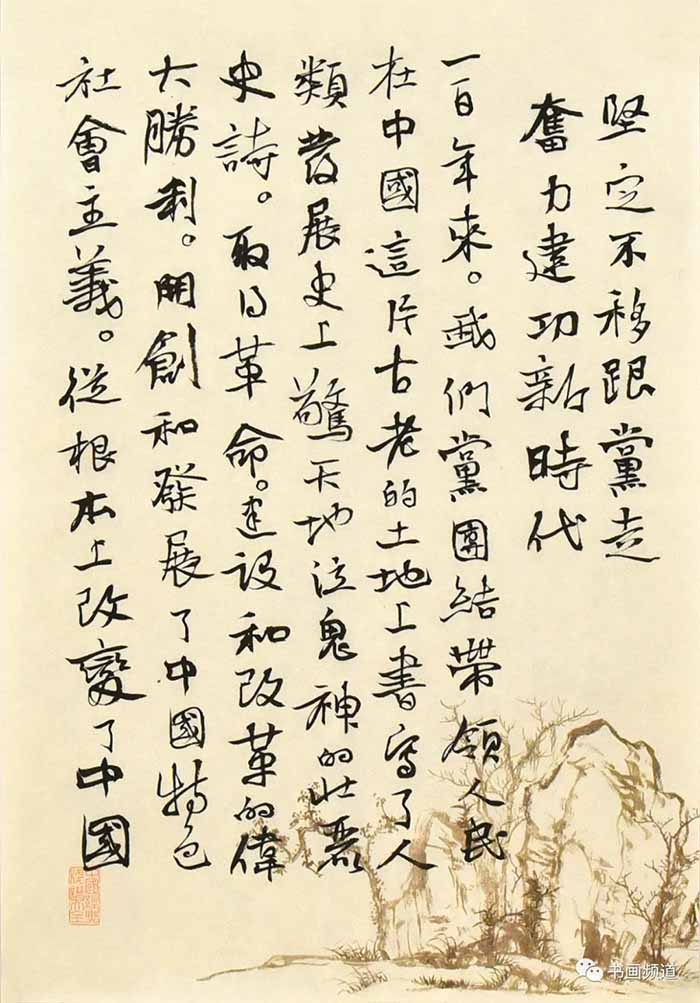 堅定不移跟黨走
奮力建功新時代
一百年來。我們黨團結帶領人民
在中國這片古老的土地上書寫了人
類發展史上驚天地泣鬼神的壯麗
史詩。取得革命。建設和改革的偉
大勝利。開創和發展了中國特色
社會主義。從根本上改變了中國
书画频道